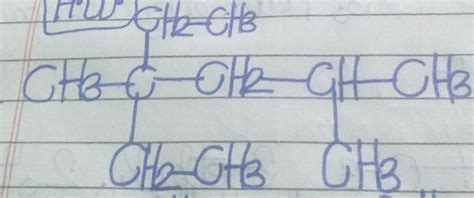 H.W CH2-CH3
CH3-C-CH2-CH-CH3
CH2-CH3 CH3